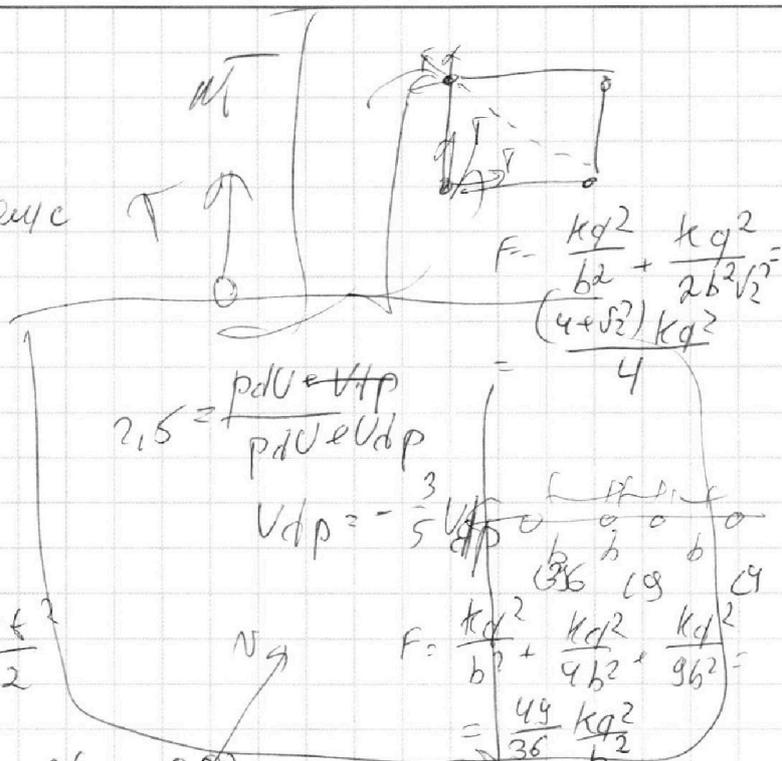 T
F = \frac{kq^2}{b^2} + \frac{kq^2}{2b^2\sqrt{2}} =
= \frac{(4+\sqrt{2})kq^2}{4}
2,5 = \frac{pdV + Vdp}{pdV + Vdp}
Vdp = -\frac{3}{5}
b b b
(36 (9 (4
\frac{t^2}{2}
N
F = \frac{kq^2}{b^2} + \frac{kq^2}{4b^2} + \frac{kq^2}{9b^2} =
= \frac{49}{36} \frac{kq^2}{b^2}